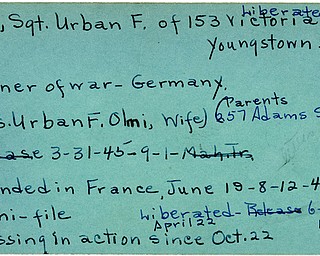 , Sgt. Urban F. of 153 Victoria Liberated
Youngstown
ner of war - Germany.
s. Urban F. Olmi, Wife) (Parents
657 Adams S
ease 3-31-45-9-1-Mah.Tr.
nded in France, June 19-8-12-4
ni-file Liberated-Release 6-
April 22
ssing in action since Oct. 22